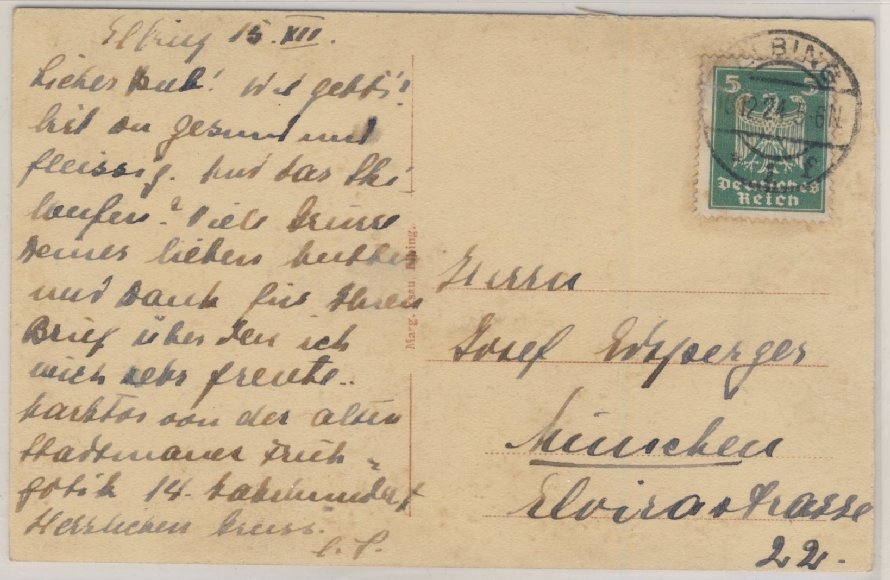 Elbing 15. XII.
Lieber Bub! Wie geht's!
bist du gesund und
fleissig. und das Ski
laufen? Viele Grüsse
Deiner lieben Mutter
und Dank für Ihren
Brief über den ich
mich sehr freute..
von der alten
Stadtmauer Früh-
gotik 14. Jahrhundert
Herzlichen Gruss
Marg. Elbing.
ELBING
12.24 6N
5 5
Deutsches
Reich
Herrn
Josef
München
Elvirastrasse
22.